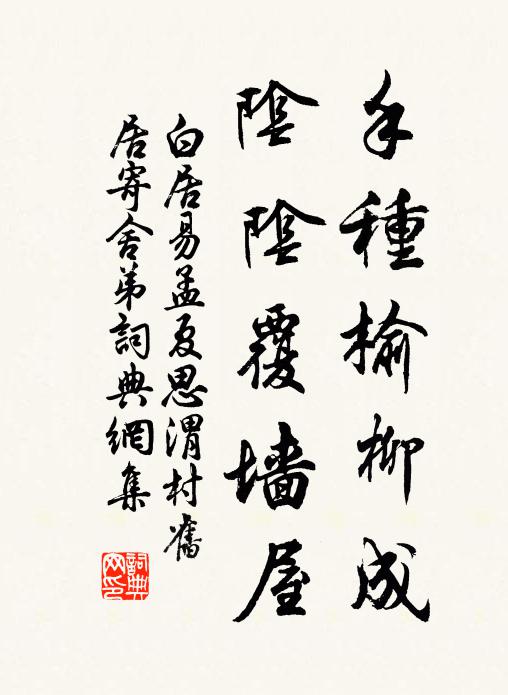 手種榆柳成
陰陰覆墻屋
白居易孟夏思渭村舊
居寄舍弟詞典網集
詞典
网印